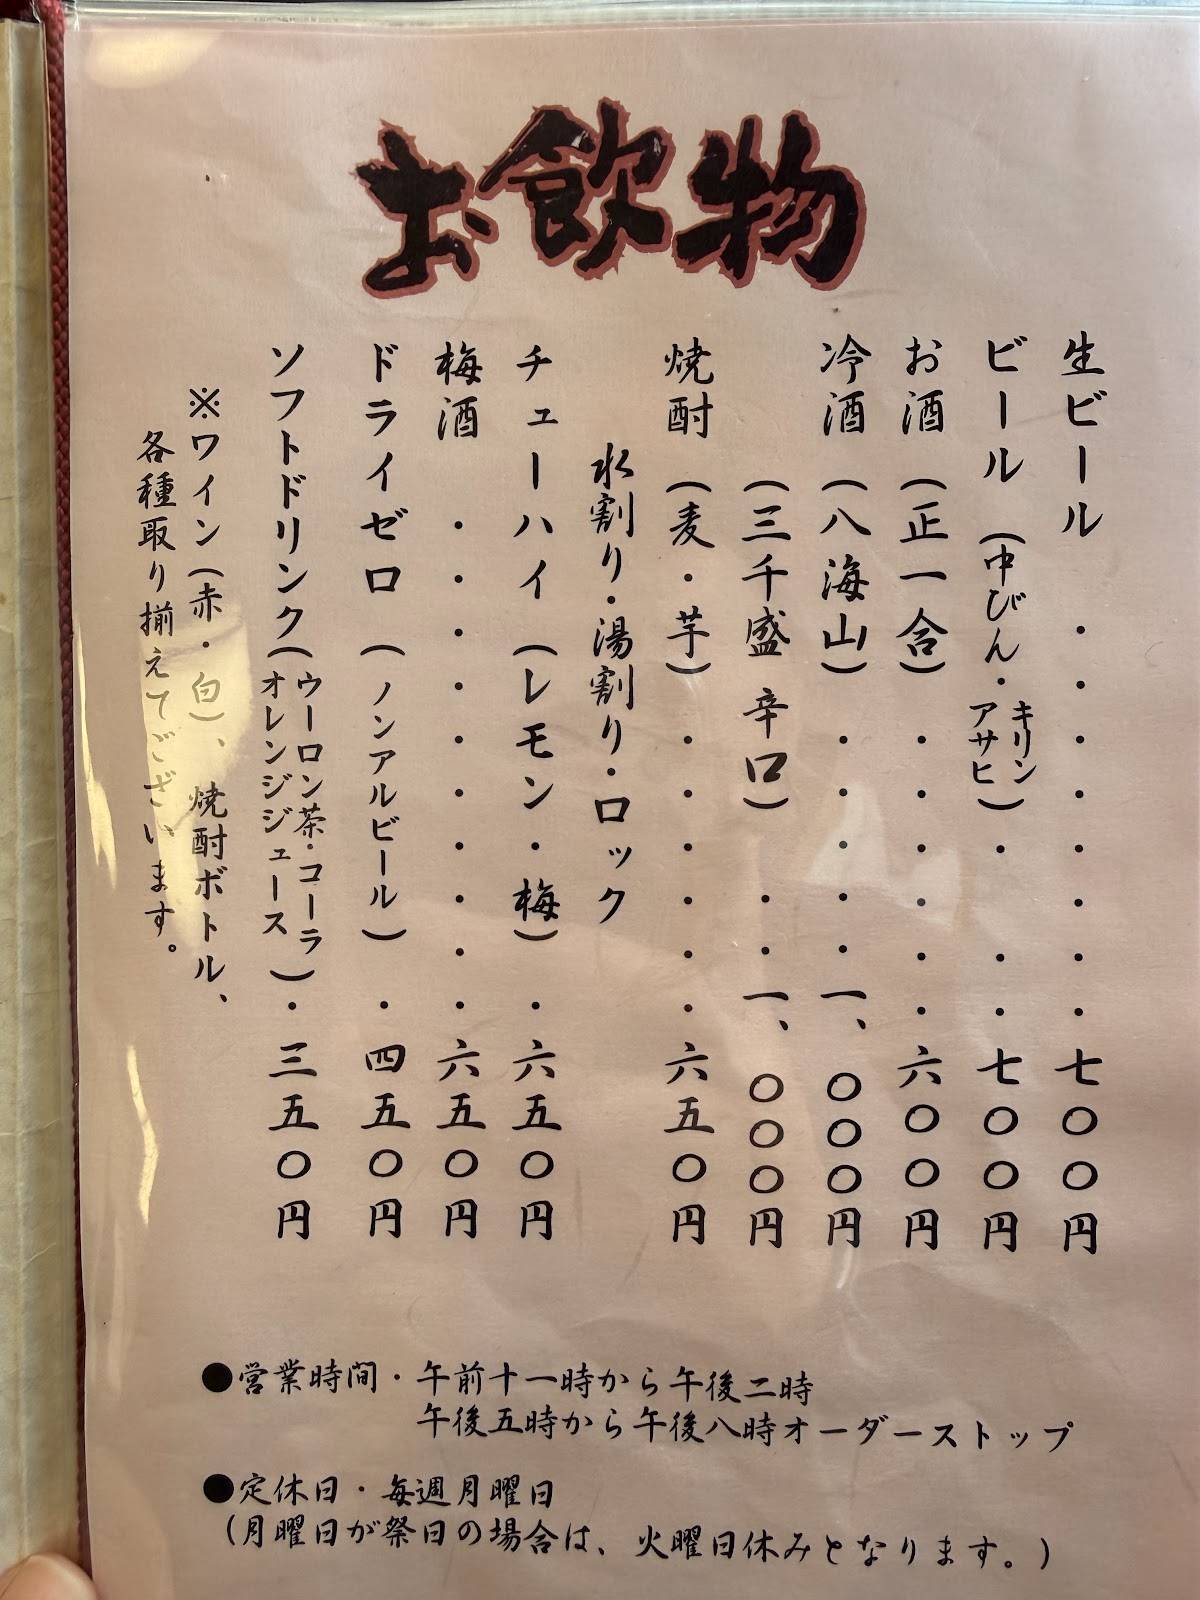 お飲物
生ビール・・・・・・・・七〇〇円
ビール（中びん・キリン アサヒ）・・・七〇〇円
お酒（正一合）・・・・・・六〇〇円
冷酒（八海山）・・・・・一、〇〇〇円
（三千盛 辛口）・・一、〇〇〇円
焼酎（麦・芋）・・・・・・六五〇円
水割り・湯割り・ロック
チューハイ（レモン・梅）・六五〇円
梅酒・・・・・・・・・・六五〇円
ドライゼロ（ノンアルビール）・四五〇円
ソフトドリンク（ウーロン茶・コーラ オレンジジュース）・三五〇円
※ワイン（赤・白）、焼酎ボトル、
各種取り揃えてございます。
●営業時間・午前十一時から午後二時
午後五時から午後八時オーダーストップ
●定休日・毎週月曜日
（月曜日が祭日の場合は、火曜日休みとなります。）